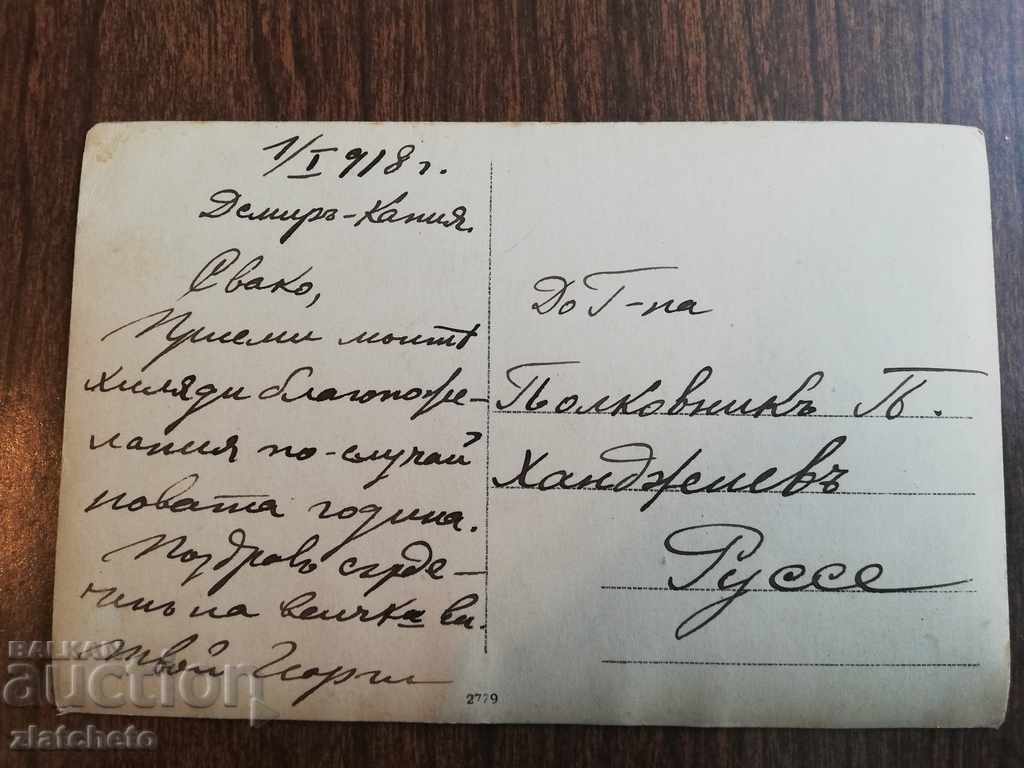 1/I 918 г.
Демиръ-Капия.
Свако,
Приеми моитѣ
хиляди благопоже-
лания по-случай
новата година.
Поздравъ сърде-
ченъ на всички ви.
Твой Георги
До Г-на
Полковникъ П.
Ханджиевъ
Руссе
2729
BALKAN
auction
zlatcheto